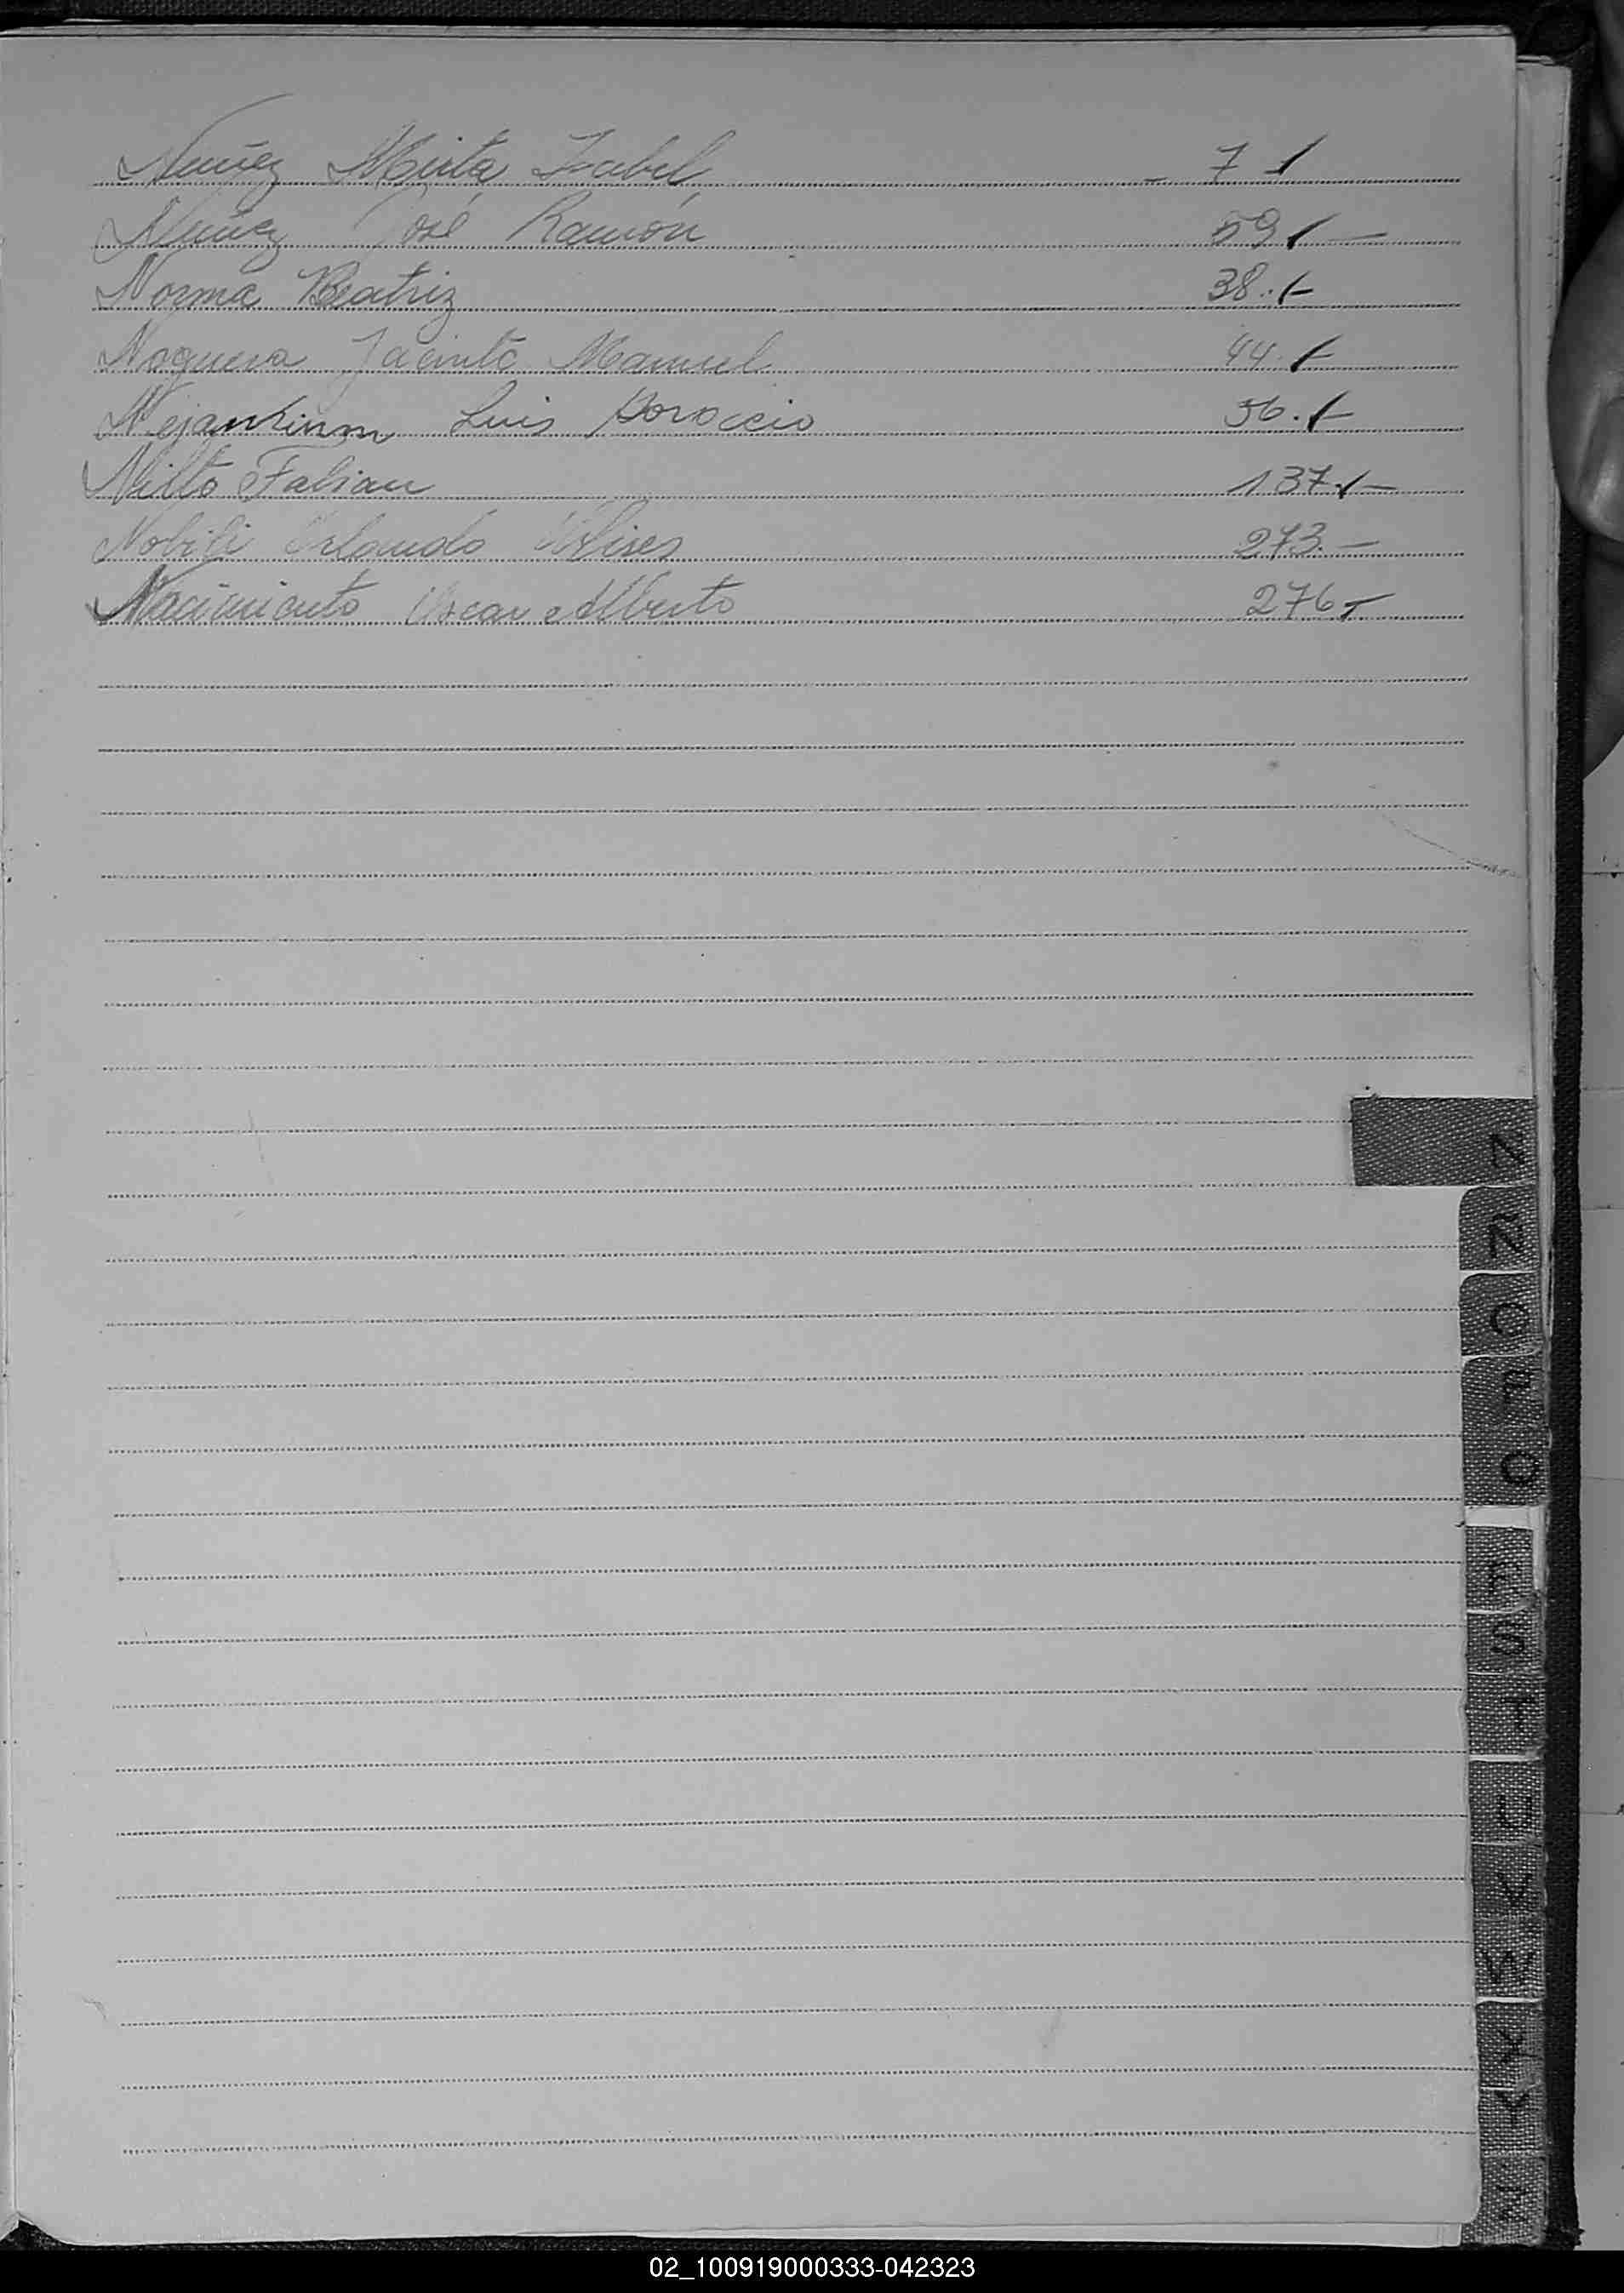 Nuñez Mirta Isabel - 7 /
Nuñez José Ramón 59 / -
Norma Beatriz 38. /-
Noguera Jacinto Manuel 44. /-
Luis 56. /-
Nillo Fabian 137. /-
Nobili Orlando Ulises 273. -
Nacimiento Oscar Alberto 276 -
N
Ñ
O
P
Q
R
S
T
U
V
W
X
Y
Z
02_100919000333-042323